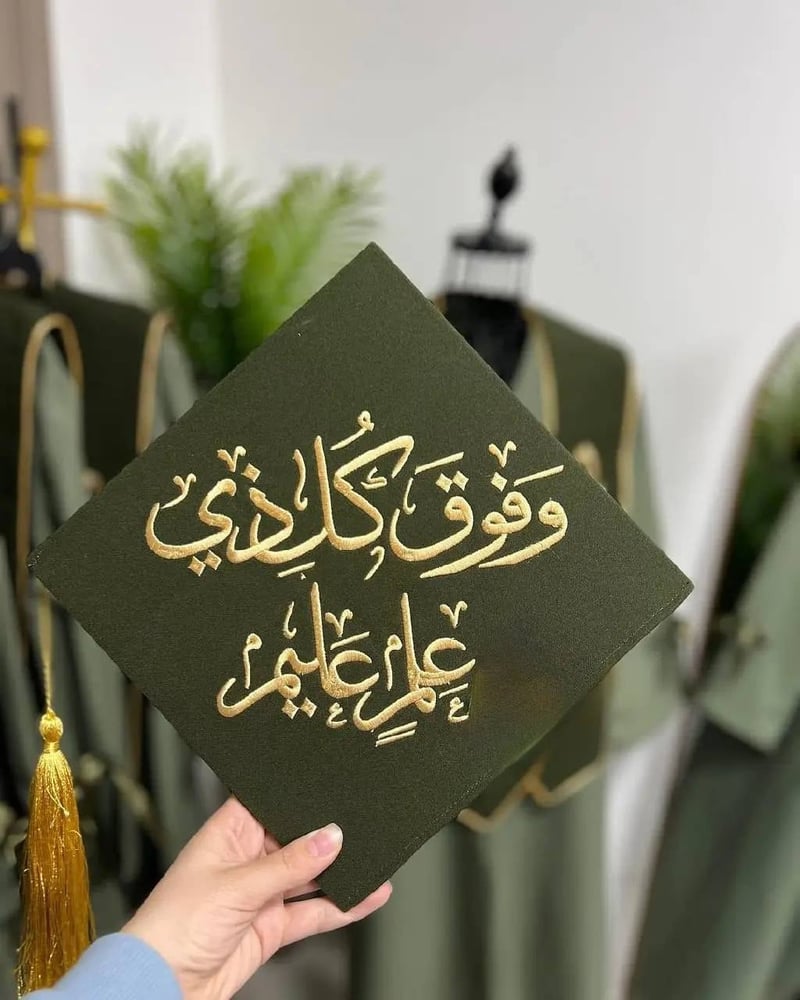 وَفوقَ كُلِ ذي
عِلمٍ عليم